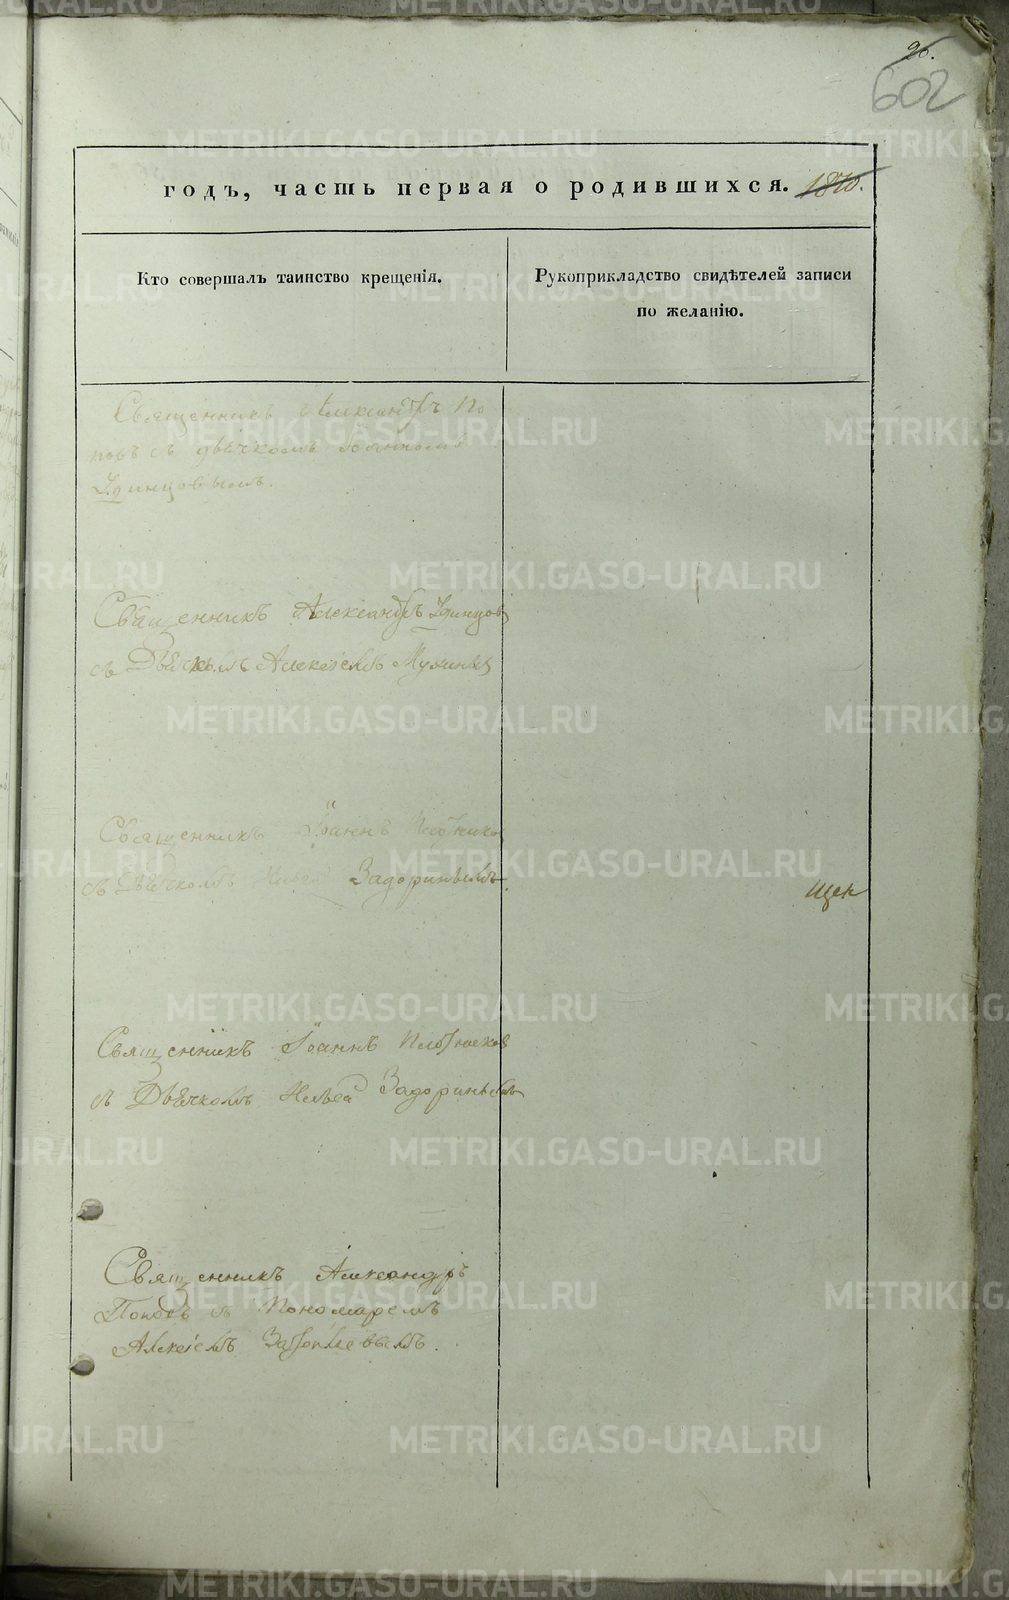 96.
602
годъ, часть первая о родившихся. 1840.
Кто совершалъ таинство крещенія.
Рукоприкладство свидѣтелей записи
по желанію.
Священникъ Александръ По
повъ съ дьячкомъ Іоанномъ
Удинцовымъ.
Священникъ Александръ Удинцов
съ Дьячкомъ Алексіемъ Мухинымъ
Священникъ Іоаннъ Плотников
съ Дьячкомъ Задоринымъ.
щен
Священникъ Іоаннъ Плотников
съ Дьячкомъ Задоринымъ
Священникъ Александръ
Поповъ съ Пономаремъ
Алексіемъ
METRIKI.GASO-URAL.RU